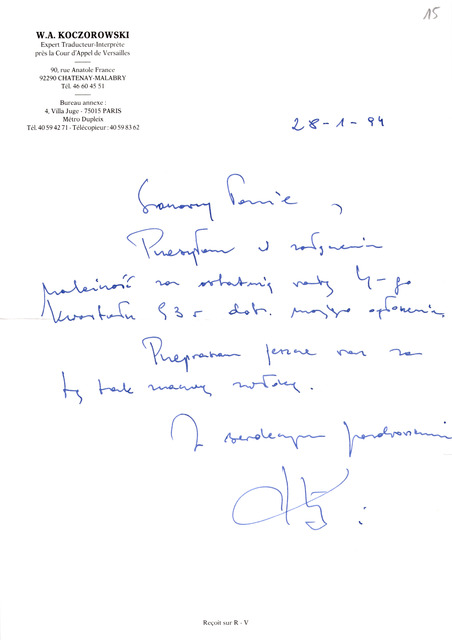 15
W.A. KOCZOROWSKI
Expert Traducteur-Interprète
près la Cour d'Appel de Versailles
90, rue Anatole France
92290 CHATENAY-MALABRY
Tél. 46 60 45 51
Bureau annexe :
4, Villa Juge - 75015 PARIS
Métro Dupleix
Tél. 40 59 42 71 - Télécopieur : 40 59 83 62
28-1-94
Szanowny Panie,
Przesyłam w załączeniu
należność za ostatnią ratę 4-go
kwartału 93 r dot. mojego ogłoszenia.
Przepraszam jeszcze raz za
tę tak znaczną zwłokę.
Z serdecznym pozdrowieniem
Reçoit sur R - V